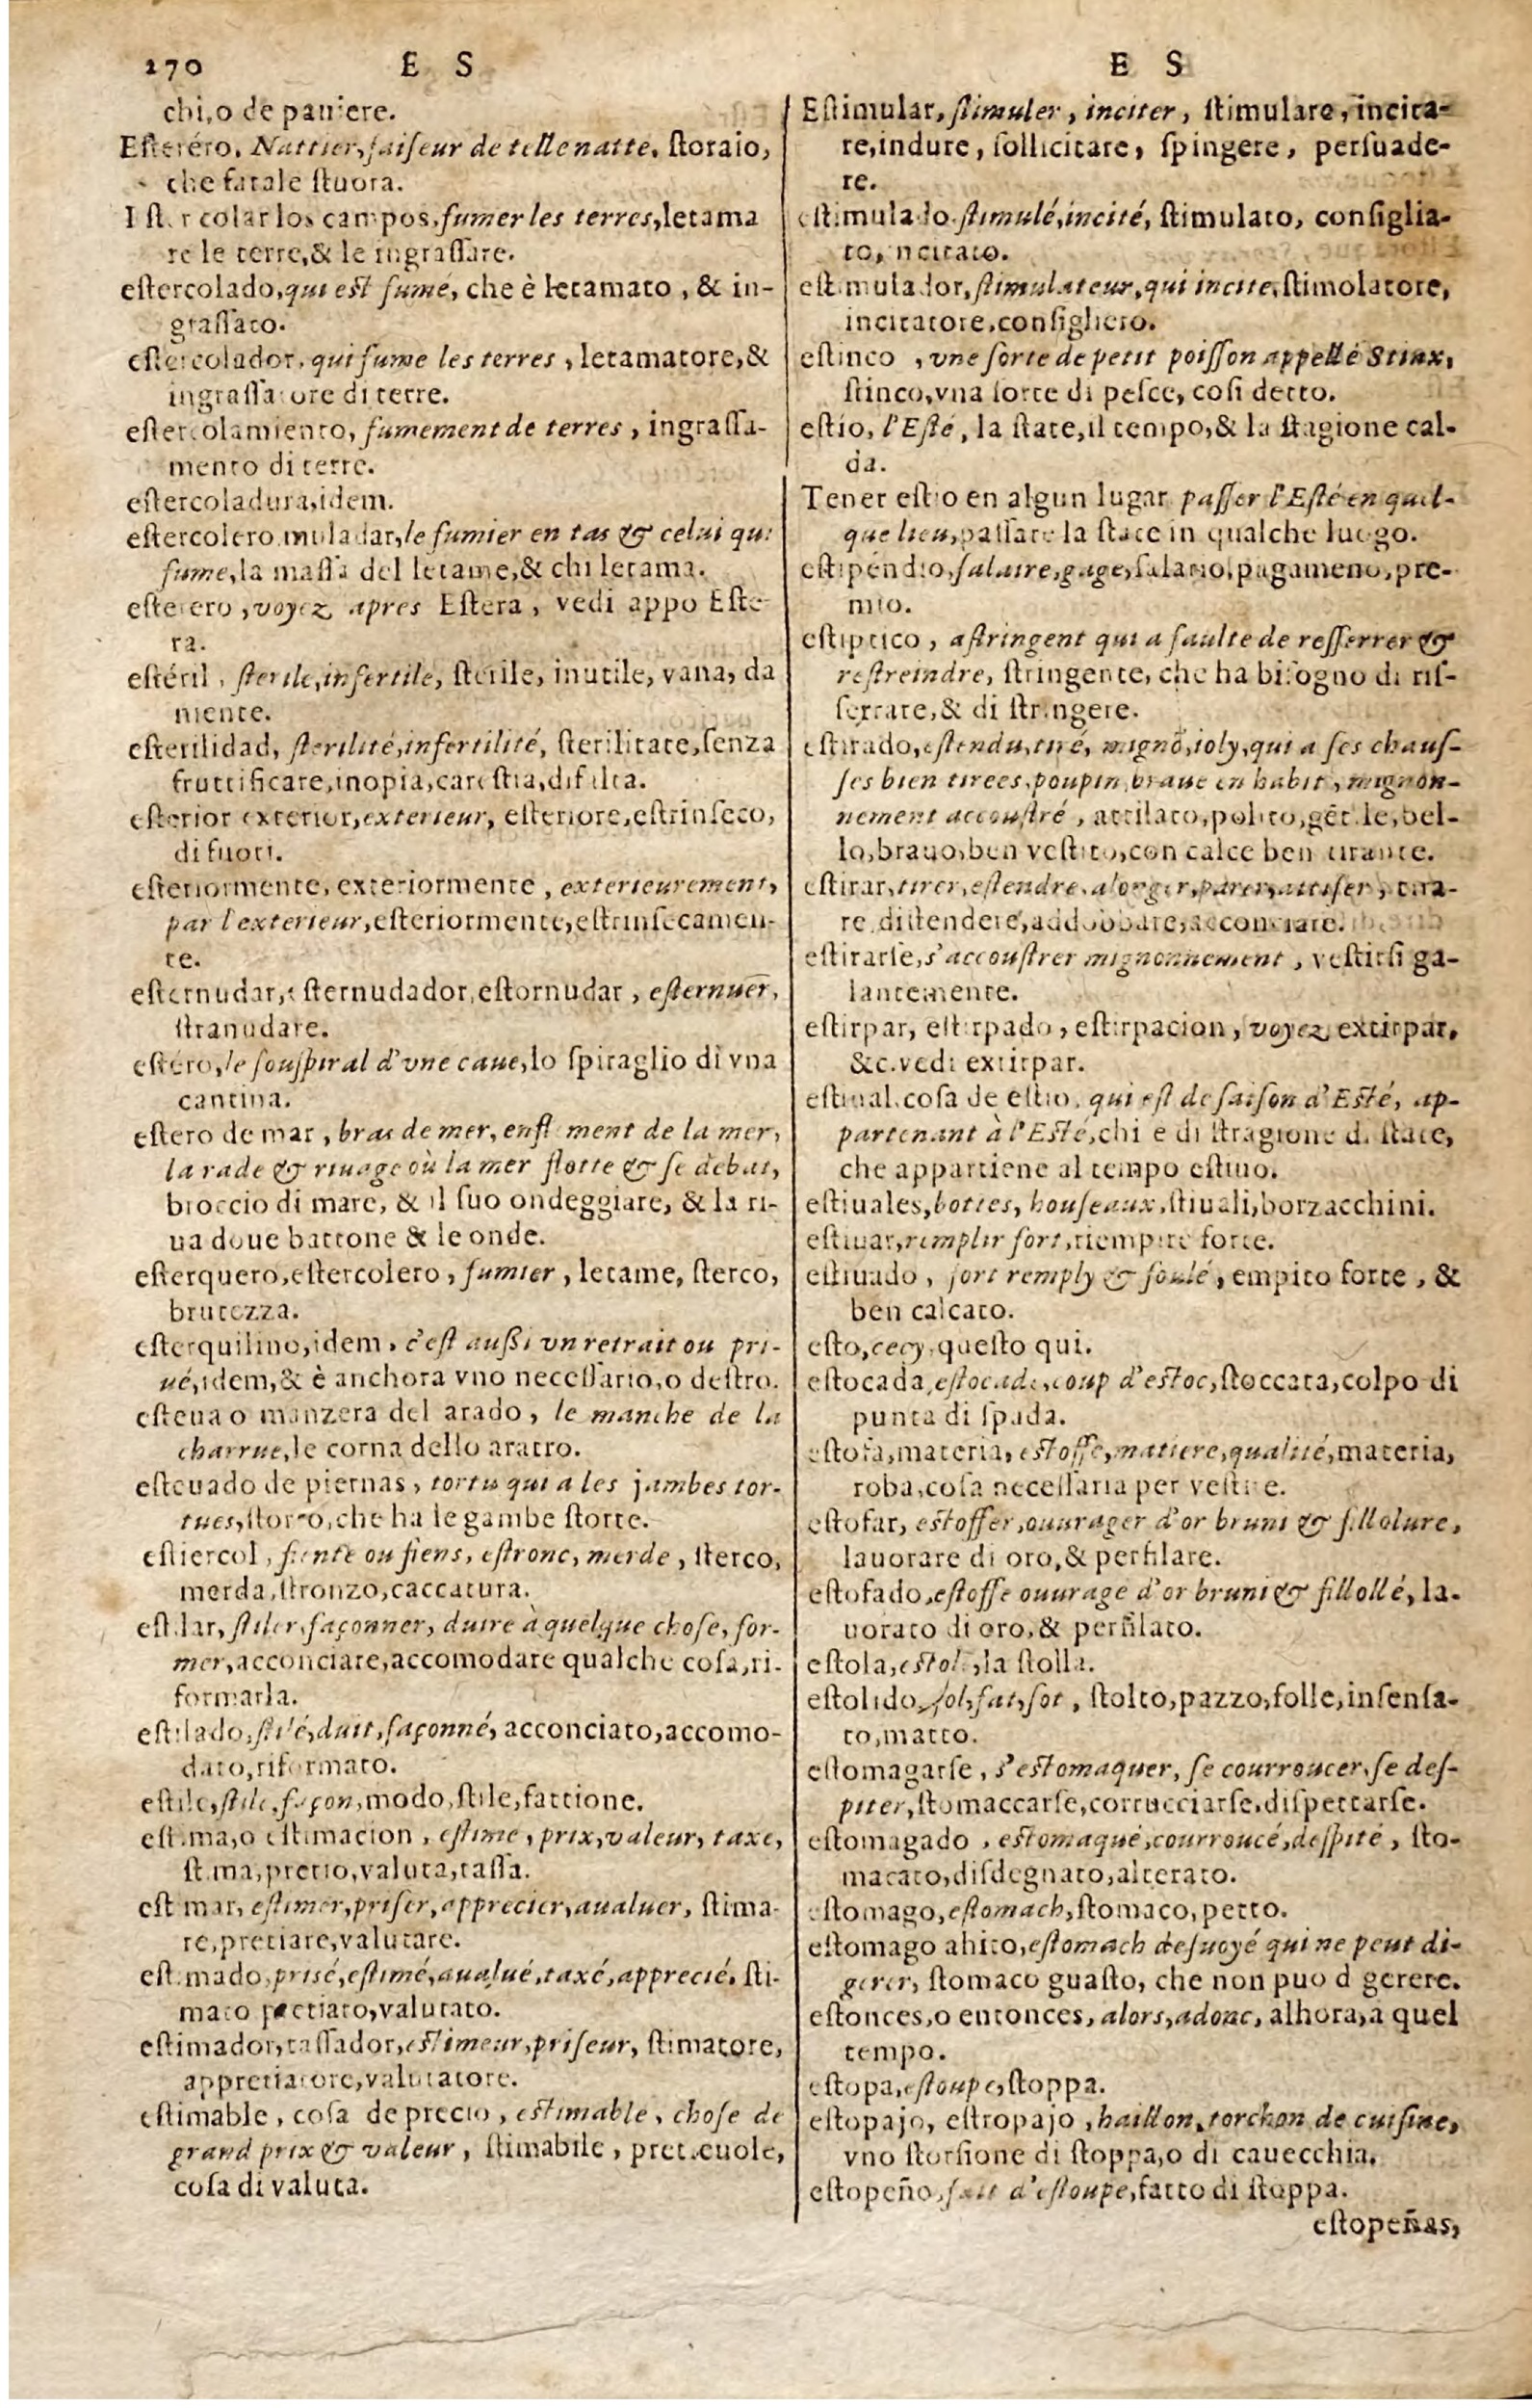 270 E S
chi,o de paniere.
Esteréro, Nattier, faiseur de telle natte, storaio,
che fa tale stuora.
Estercolar los campos, fumer les terres, letama
re le terre,& le ingrassare.
estercolado, qui est fumé, che è letamato, & in-
grassato.
estercolador, qui fume les terres, letamatore,&
ingrassatore di terre.
estercolamiento, fumement de terres, ingrassa-
mento di terre.
estercoladura,idem.
estercolero muladar, le fumier en tas & celui qui
fume, la massa del letame,& chi letama.
esterero, voyez apres Estera, vedi appo Este-
ra.
estéril, sterile, infertile, sterile, inutile, vana, da
niente.
esterilidad, sterilité, infertilité, sterilitate, senza
fruttificare, inopia, carestia, disilta.
esterior exterior, exterieur, esteriore, estrinseco,
di fuori.
esteriormente, exteriormente, exterieurement,
par l'exterieur, esteriormente, estrinsecamen-
te.
esternudar, esternudador, estornudar, esternuer,
stranudare.
estéro, le souspiral d'vne caue, lo spiraglio di vna
cantina.
estero de mar, bras de mer, enflement de la mer,
la rade & riuage où la mer flotte & se debat,
broccio di mare, & il suo ondeggiare, & la ri-
ua doue battone & le onde.
esterquero, estercolero, fumier, letame, sterco,
brutezza.
esterquilino, idem, c'est aussi vn retrait ou pri-
ué, idem,& è anchora vno necessario, o destro.
esteua o manzera del arado, le manche de la
charrue, le corna dello aratro.
esteuado de piernas, tortu qui a les jambes tor-
tues, storto, che ha le gambe storte.
estiercol, fiente ou fiens, estronc, merde, sterco,
merda, stronzo, caccatura.
estilar, stiler, façonner, duire à quelque chose, for-
mer, acconciare, accomodare qualche cosa, ri-
formarla.
estilado, stilé, duit, façonné, acconciato, accomo-
dato, riformato.
estilo, stile, façon, modo, stile, fattione.
estima, o estimacion, estime, prix, valeur, taxe,
stima, pretio, valuta, tassa.
estimar, estimer, priser, apprecier, aualuer, stima-
re, pretiare, valutare.
estimado, prisé, estimé, aualué, taxé, apprecié, sti-
mato pretiato, valutato.
estimador, tassador, estimeur, priseur, stimatore,
appretiatore, valutatore.
estimable, cosa de precio, estimable, chose de
grand prix & valeur, stimabile, preteuole,
cosa di valuta.
E S
Estimular, stimuler, inciter, stimulare, incita-
re, indure, sollicitare, spingere, persuade-
re.
estimulado stimulé, incité, stimulato, consiglia-
to, incitato.
estimulador, stimulateur, qui incite, stimolatore,
incitatore, consigliero.
estinco, vne sorte de petit poisson appellé Stinx,
stinco, vna sorte di pesce, cosi detto.
estío, l'Esté, la state, il tempo,& la stagione cal-
da.
Tener estio en algun lugar passer l'Esté en quel-
que lieu, passare la state in qualche luogo.
estipéndio, salaire, gage, salario, pagameno, pre-
mio.
estiptico, astringent qui a faulte de resserrer &
restreindre, stringente, che ha bisogno di ris-
serrare,& di stringere.
estirado, estendu, tiré, mignõ, ioly, qui a ses chaus-
ses bien tirees, poupin, braue en habit, mignon-
nement accoustré, attilato, polito, gẽtile, bel-
lo, brauo, ben vestito, con calce ben tirante.
estirar, tirer, estendre, alonger, parer, attifer, tira-
re, distendere, addobbare, acconciare.
estirarse, s'accoustrer mignonnement, vestirsi ga-
lantemente.
estirpar, estirpado, estirpacion, voyez extirpar,
&c. vedi extirpar.
estiual, cosa de estio, qui est de saison d'Esté, ap-
partenant à l'Esté, chi e di stragione di state,
che appartiene al tempo estiuo.
estiuales, bottes, houseaux, stiuali, borzacchini.
estiuar, remplir fort, riempire forte.
estiuado, fort remply & foulé, empito forte, &
ben calcato.
esto, cecy, questo qui.
estocada, estocade, coup d'estoc, stoccata, colpo di
punta di spada.
estofa, materia, estoffe, matiere, qualité, materia,
roba, cosa necessaria per vestire.
estofar, estoffer, ouurager d'or bruni & fillolure,
lauorare di oro,& perfilare.
estofado, estoffe ouurage d'or bruni & fillollé, la-
uorato di oro,& perfilato.
estola, estole, la stolla.
estolido, fol, fat, sot, stolto, pazzo, folle, insensa-
to, matto.
estomagarse, s'estomaquer, se courroucer, se des-
piter, stomaccarse, corrucciarse, dispettarse.
estomagado, estomaqué, courroucé, despité, sto-
macato, disdegnato, alterato.
estomago, estomach, stomaco, petto.
estomago ahito, estomach desuoyé qui ne peut di-
gerer, stomaco guasto, che non puo digerere.
estonces, o entonces, alors, adonc, alhora, a quel
tempo.
estopa, estoupe, stoppa.
estopajo, estropajo, haillon, torchon de cuisine,
vno storsione di stoppa, o di cauecchia.
estopeño, fait d'estoupe, fatto di stoppa.
estopeñas,